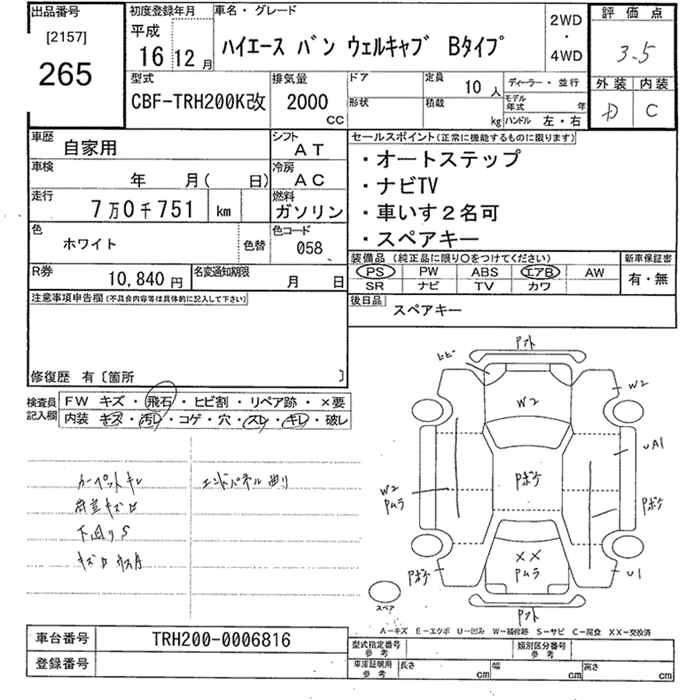 出品番号
[2157]
265
初度登録年月
平成
16 12月
車名・グレード
ハイエース バン ウェルキャブ Bタイプ
2WD
・
4WD
評価点
3.5
外装 内装
D C
型式
CBF-TRH200K改
排気量
2000
CC
ドア
形状
定員
10人
積載
kg
ディーラー・並行
モデル年式 年
ハンドル 左・右
車歴
自家用
シフト
AT
車検
年 月( 日)
冷房
AC
走行
7万0千751 km
燃料
ガソリン
色
ホワイト
色替
色コード
058
R券
10,840円
名変通知期限
月 日
セールスポイント(正常に機能するものに限ります)
・オートステップ
・ナビTV
・車いす2名可
・スペアキー
装備品 (純正品に限り○をつけてください)
PS PW ABS エアB AW
SR ナビ TV カワ
新車保証書
有・無
後日品
スペアキー
注意事項申告欄(不具合内容等は具体的に記入して下さい)
修復歴 有〔箇所 〕
検査員
記入欄
FW キズ・飛石・ヒビ割・リペア跡・×要
内装 キズ・汚レ・コゲ・穴・スレ・キレ・破レ
カーペットキレ
荷室キズ凹
下回りS
エンドパネル曲り
ヒビ
Pアト
W2
W2
UA1
W2
Pムラ
Pボケ
Pボケ
XX
Pムラ
Pボケ
U1
Pアト
スペア
A-キズ E-エクボ U-凹み W-補修跡 S-サビ C-腐食 XX-交換済
車台番号
TRH200-0006816
登録番号
型式指定番号
参考
類別区分番号
参考
車庫証明用
参考
長さ cm
幅 cm
高さ cm